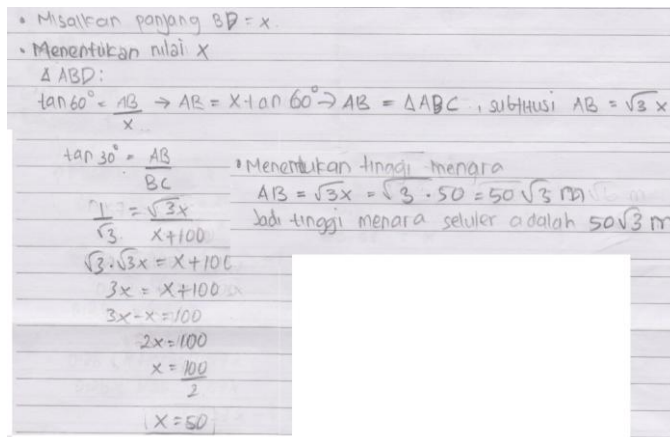 • Misalkan panjang BD = x.
• Menentukan nilai x
Δ ABD:
tan 60° = AB/x → AB = x tan 60° → AB = Δ ABC, subtitusi AB = √3 x
tan 30° = AB/BC
1/√3 = √3x/x+100
√3·√3x = x+100
3x = x+100
3x-x = 100
2x = 100
x = 100/2
x = 50
• Menentukan tinggi menara
AB = √3x = √3 · 50 = 50√3 m
Jadi tinggi menara seluler adalah 50√3 m